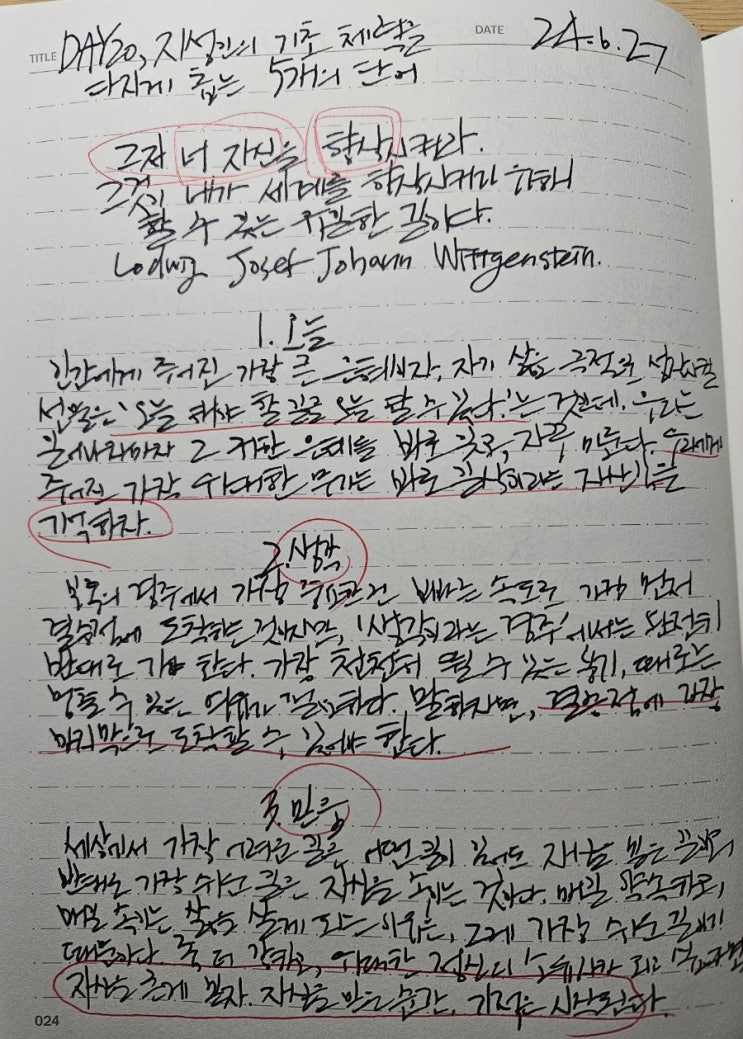 TITLE DAY20, 지성인의 기초 체력을 DATE 24.6.27
다지게 돕는 5개의 단어
그저 너 자신을 향상시켜라.
그것이 네가 세계를 향상시키기 위해
할 수 있는 유일한 길이다.
Lodwig Josef Johann Wittgenstein.
1. 오늘
인간에게 주어진 가장 큰 은혜이자, 자기 삶을 극적으로 성장시킬
선물은 '오늘 해야 할 일을 오늘 할 수 있다.'는 것인데. 우리는
불행하게도 그 귀한 은혜를 바로 잊고, 자꾸 미룬다. 우리에게
주어진 가장 위대한 무기는 바로 일상이라는 자산임을
기억하자.
2. 생각
보통의 경주에서 가장 중요한 건 빠른 속도로 가장 먼저
결승점에 도착하는 것이지만, '생각이라는 경주'에서는 완전히
반대로 가야 한다. 가장 천천히 뛸 수 있는 용기, 때로는
멈출 수 있는 여유가 필요하다. 말하자면, 결승점에 가장
마지막으로 도착할 수 있어야 한다.
3. 믿음
세상에서 가장 어려운 일은 어떤 일이 있어도 자신을 믿는 일이며,
반대로 가장 쉬운 일은 자신을 속이는 것이다. 매일 약속하고,
매일 속이는 삶을 살게 되는 이유는, 그게 가장 쉬운 일이기
때문이다. 좀 더 강하고, 위대한 정신의 소유자가 되고 싶다면
자신을 믿게 말자. 자신을 믿는 순간, 기적은 시작된다.
024